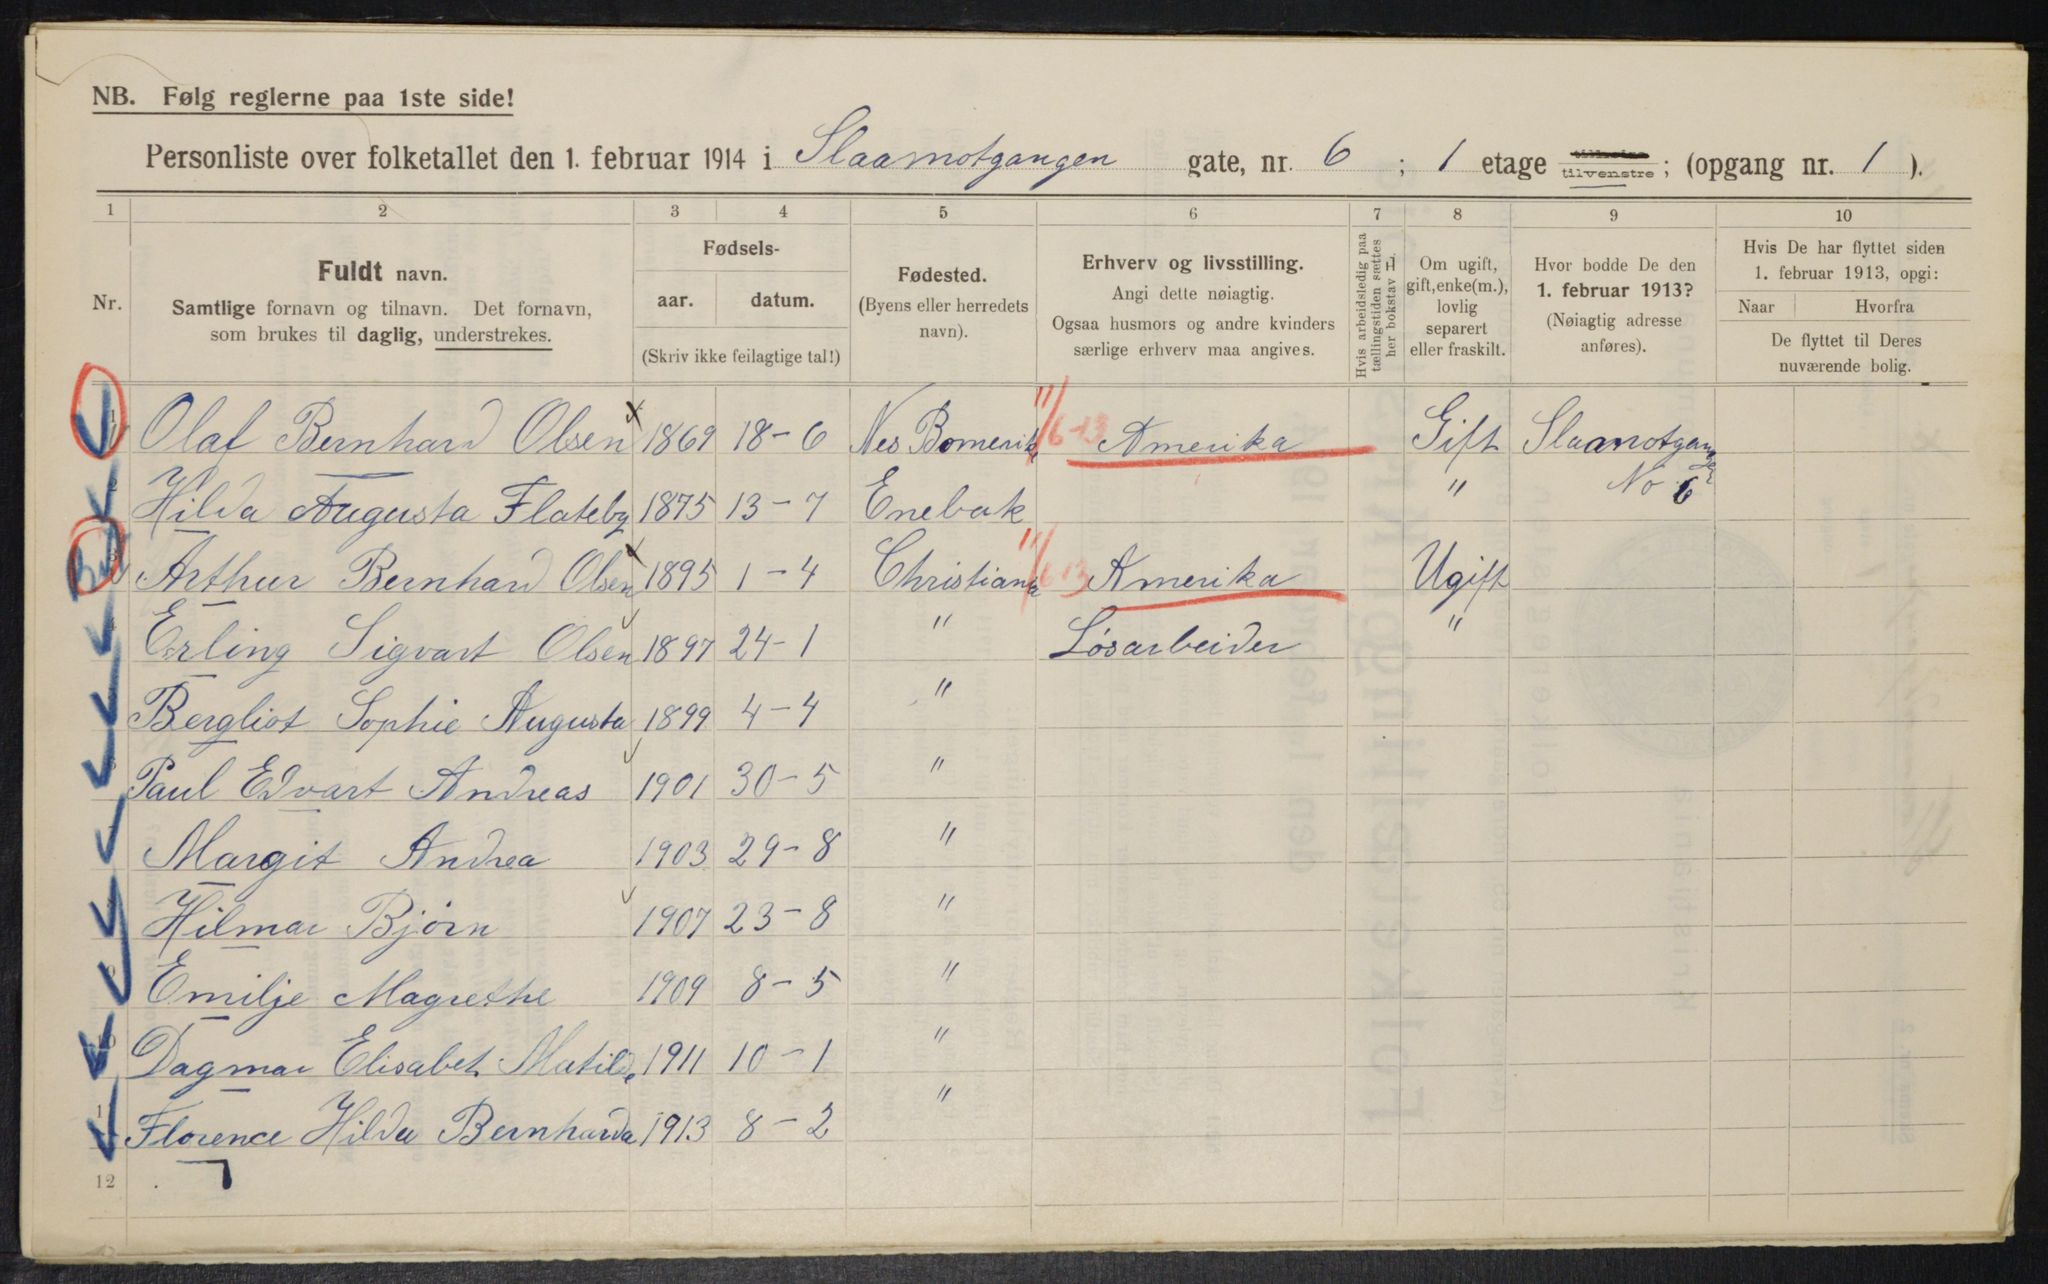 NB. Følg reglerne paa 1ste side!
Personliste over folketallet den 1. februar 1914 i Slaamotgangen gate, nr. 6 ; 1 etage tilvenstre ; (opgang nr. 1 ).
1 2 3 4 5 6 7 8 9 10
Nr.
Fuldt navn.
Samtlige fornavn og tilnavn. Det fornavn,
som brukes til daglig, understrekes.
Fødsels-
aar. datum.
(Skriv ikke feilagtige tal!)
Fødested.
(Byens eller herredets
navn).
Erhverv og livsstilling.
Angi dette nøiagtig.
Ogsaa husmors og andre kvinders
særlige erhverv maa angives.
Hvis arbeidsledig paa
tællingstiden sættes
her bokstav L.
Om ugift,
gift, enke(m.),
lovlig
separert
eller fraskilt.
Hvor bodde De den
1. februar 1913?
(Nøiagtig adresse
anføres).
Hvis De har flyttet siden
1. februar 1913, opgi:
Naar Hvorfra
De flyttet til Deres
nuværende bolig.
1 Olaf Bernhard Olsen 1869 18-6 Nes Bomerike 11/6-13 Amerika Gift Slaamotgangen
Hilda Augusta Flateby 1875 13-7 Enebak " No 6
Arthur Bernhard Olsen 1895 1-4 Christiania 11/6 13 Amerika Ugift
Erling Sigvart Olsen 1897 24-1 " Løsarbeider "
Bergliot Sophie Augusta 1899 4-4 "
Paul Edvart Andreas 1901 30-5 "
Margit Andrea 1903 29-8 "
Hilmar Bjørn 1907 23-8 "
Emilje Magrethe 1909 8-5 "
10 Dagmar Elisabet Matilde 1911 10-1 "
Florence Hilda Bernharda 1913 8-2 "
12